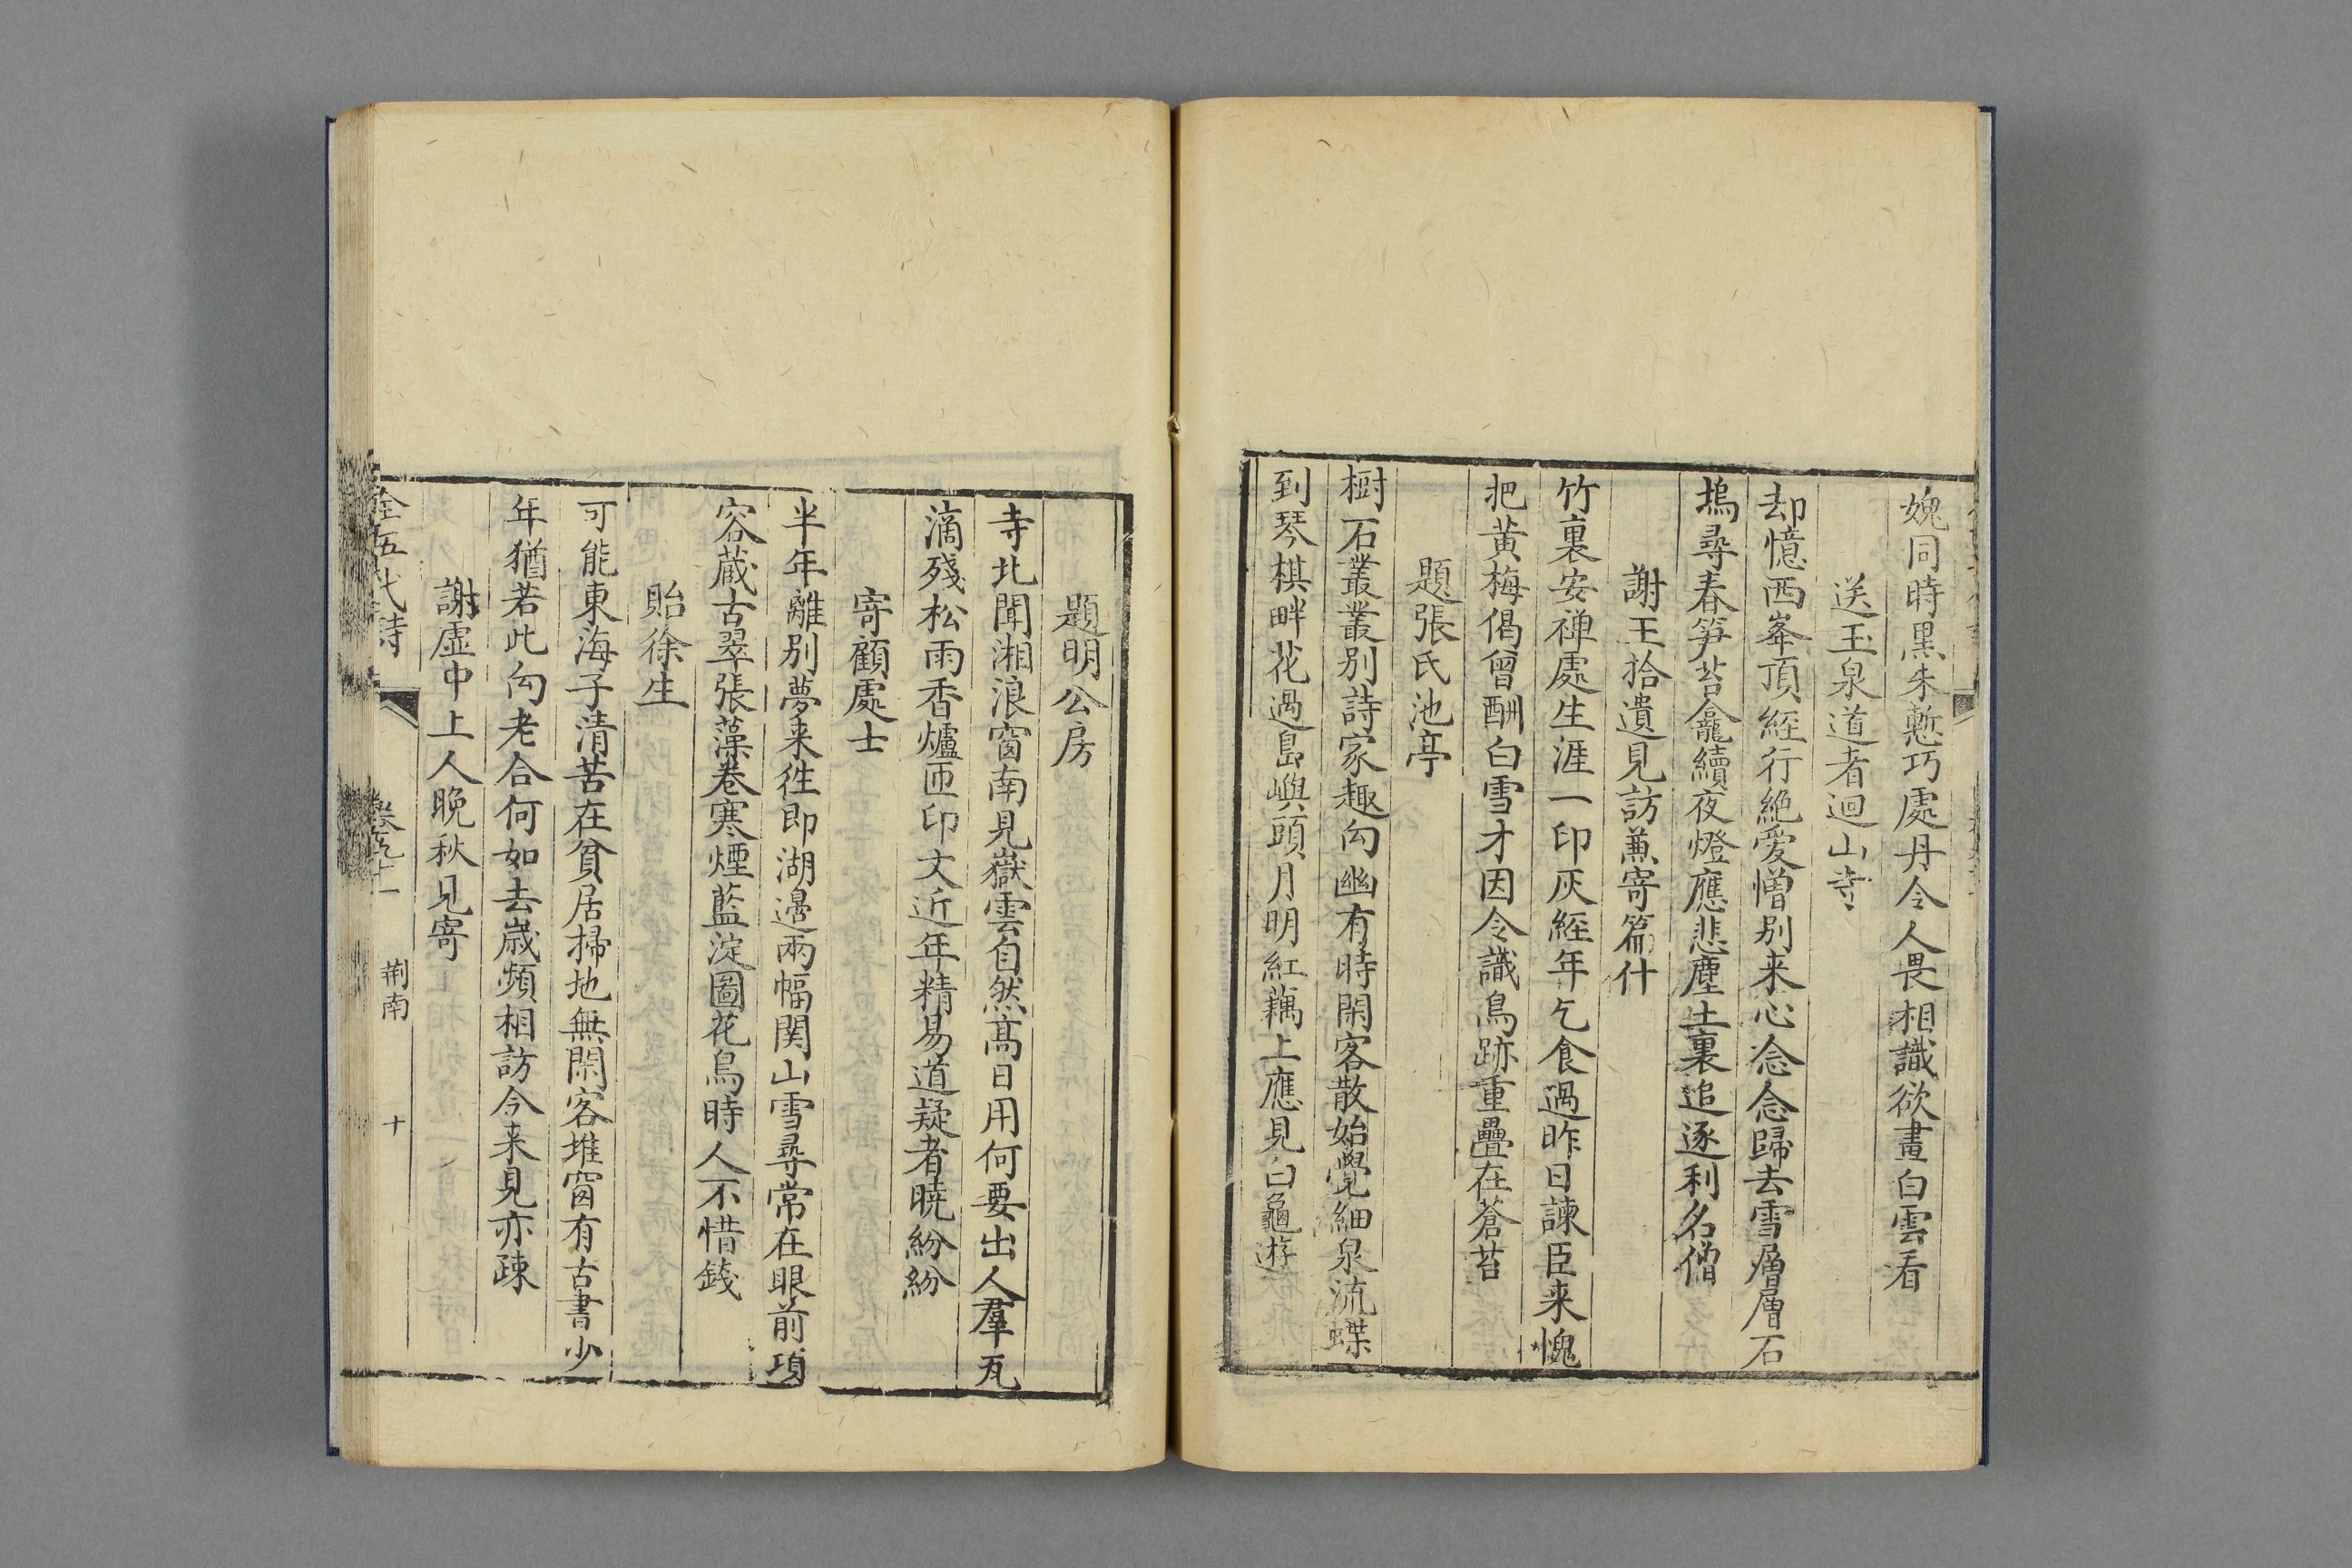 媿同時黑朱慙巧處丹令人畏相識欲畫白雲看
送玉泉道者迴山寺
却憶西峯頂經行絶愛憎别来心念念歸去雪層層石
塢尋春筍苔龕續夜燈應悲塵土裏追逐利名僧
謝王拾遺見訪蒹寄篇什
竹裏安禅處生涯一印灰經年乞食過昨日諫臣来愧
把黄梅偈曾酬白雪才因令識鳥跡重疊在蒼苔
題張氏池亭
樹石叢叢别詩家趣向幽有時閑客散始覺細泉流蝶
到琴棋畔花過島嶼頭月明紅藕上應見白龜遊
題明公房
寺北聞湘浪窗南見嶽雲自然髙日用何要出人羣瓦
滴殘松雨香爐匝印文近年精易道疑者曉紛紛
寄顧處士
半年離别夢来徃即湖邊兩幅関山雪尋常在眼前項
容藏古翠張藻卷寒煙藍淀圖花鳥時人不惜錢
貽徐生
可能東海子清苦在貧居掃地無閑客堆窗有古書少
年猶若此向老合何如去歳頻相訪今来見亦疎
謝虛中上人晚秋見寄
全五代詩
卷九十一
荆南
十